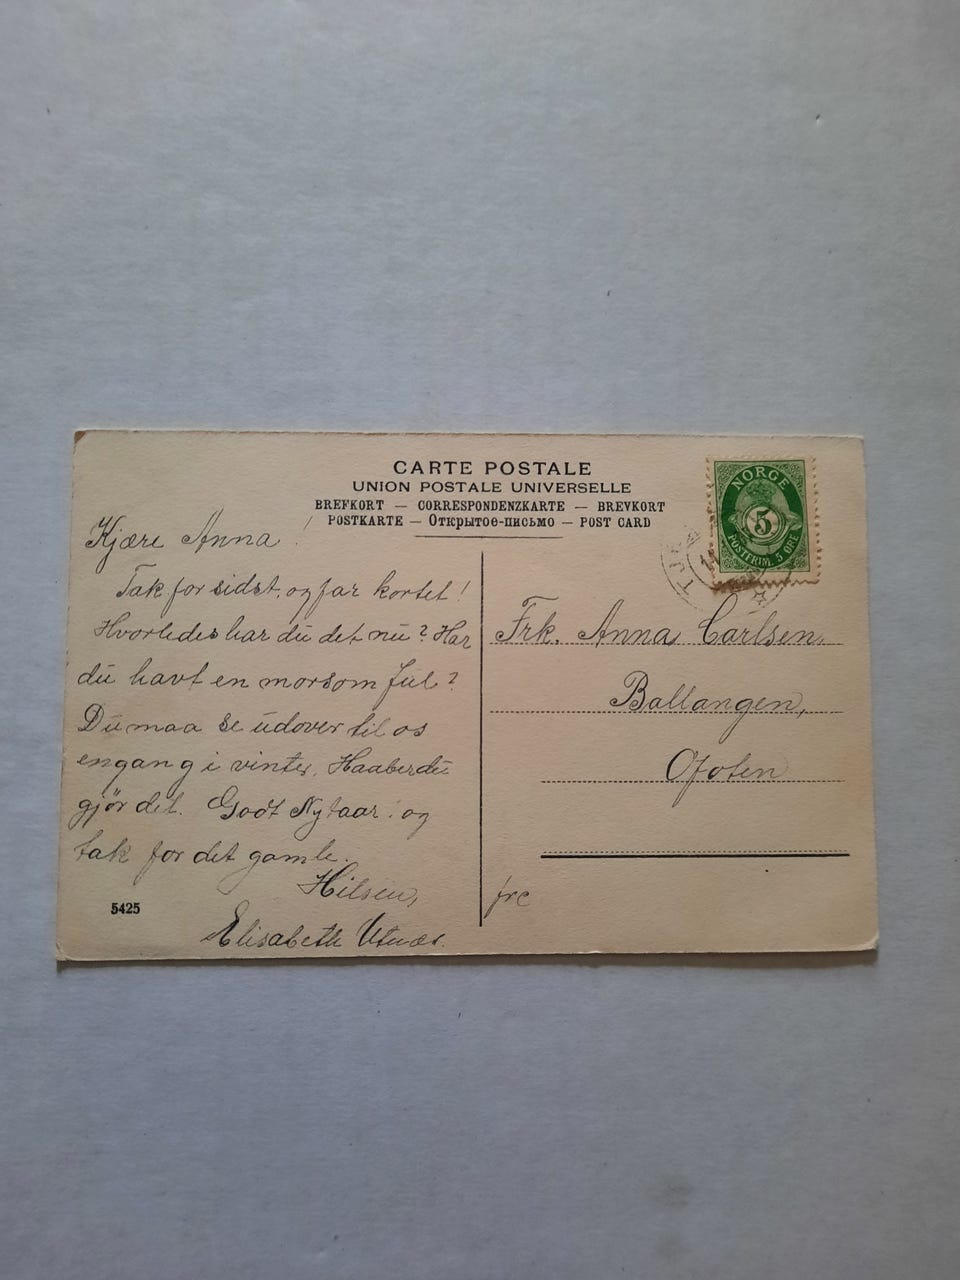 CARTE POSTALE
UNION POSTALE UNIVERSELLE
BREFKORT — CORRESPONDENZKARTE — BREVKORT
POSTKARTE — Открытое-письмо — POST CARD
NORGE
5
POSTFRIM. 5 ØRE
Kjære Anna!
Tak for sidst, og for kortet!
Hvorledes har du det nu? Har
du havt en morsom Jul?
Du maa se udover til os
engang i vinter, Haaber du
gjör det. Godt Nytaar! og
tak for det gamle.
Hilsen,
Elisabeth
5425
Frk. Anna Carlsen,
Ballangen,
Ofoten